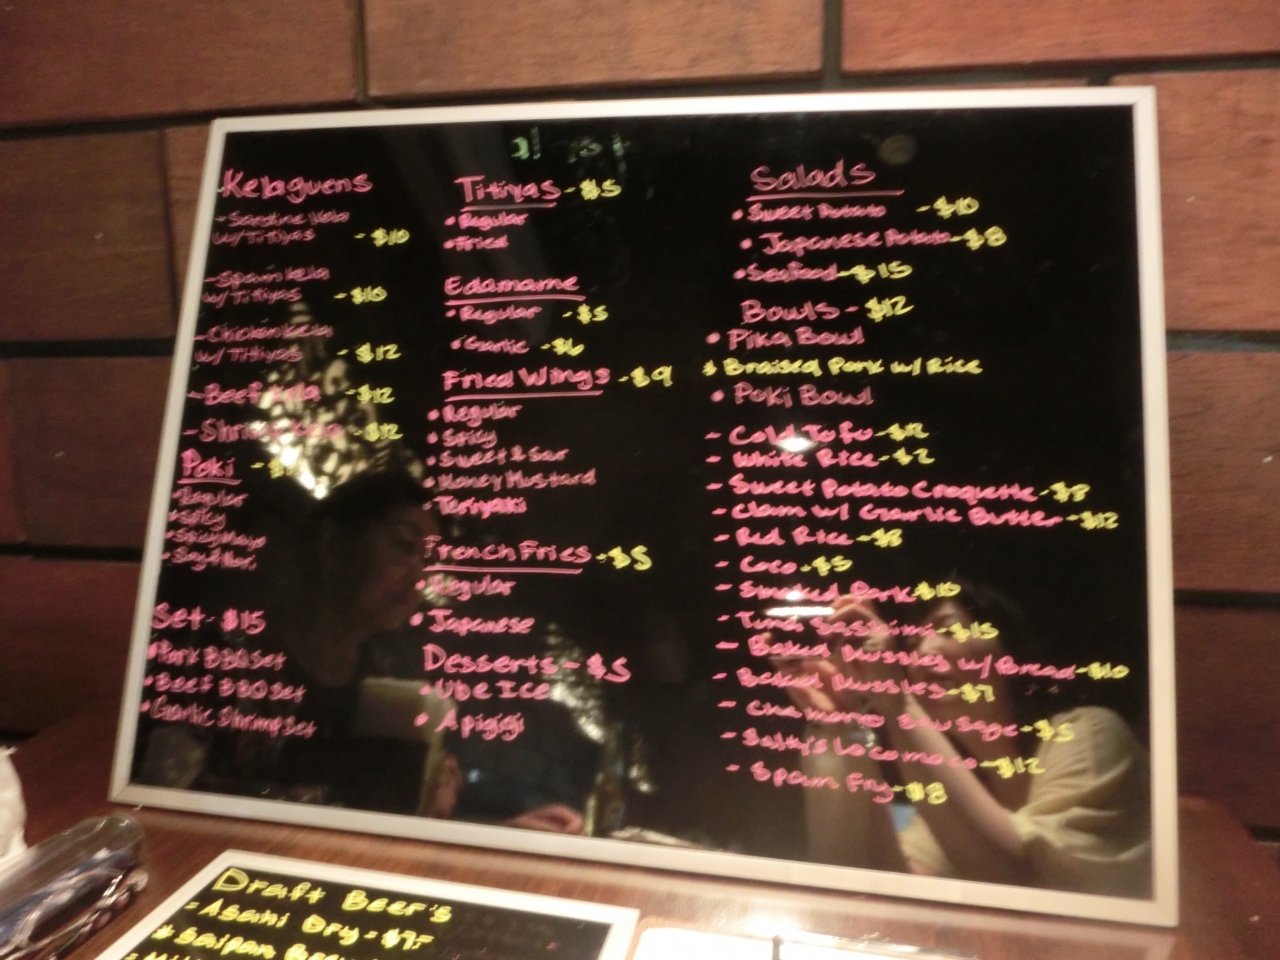 Kelaguens
- Sardine Kela
w/Titiyas - $10
- Spam Kela
w/Titiyas - $10
- Chicken Kela
w/Titiyas - $12
- Beef Kela - $12
- Shrimp Kela - $12
Poki - $
• Regular
• Spicy
• Spicy Mayo
Set - $15
• Pork BBQ Set
• Beef BBQ Set
• Garlic Shrimp Set
Titiyas - $5
• Regular
• Fried
Edamame
• Regular - $5
• Garlic - $6
Fried Wings - $9
• Regular
• Spicy
• Sweet & Sour
• Honey Mustard
• Teriyaki
French Fries - $5
• Regular
• Japanese
Desserts - $5
• Ube Ice
• Apigigi
Salads
• Sweet Potato - $10
• Japanese Potato - $8
• Seafood - $15
Bowls - $12
• Pika Bowl
• Braised Pork w/ Rice
• Poki Bowl
- Cold Tofu - $12
- White Rice - $2
- Sweet Potato Croquette - $8
- Clam w/ Garlic Butter - $12
- Red Rice - $3
- Coco - $5
- Smoked Pork $10
- Tuna Sashimi - $15
- Baked Mussles w/ Bread - $10
- Baked Mussles - $7
- Chamorro Sausage - $5
- Salty's Locomoco - $12
- Spam Fry - $8
Draft Beer's
- Asahi Dry - $7.-
* Saipan